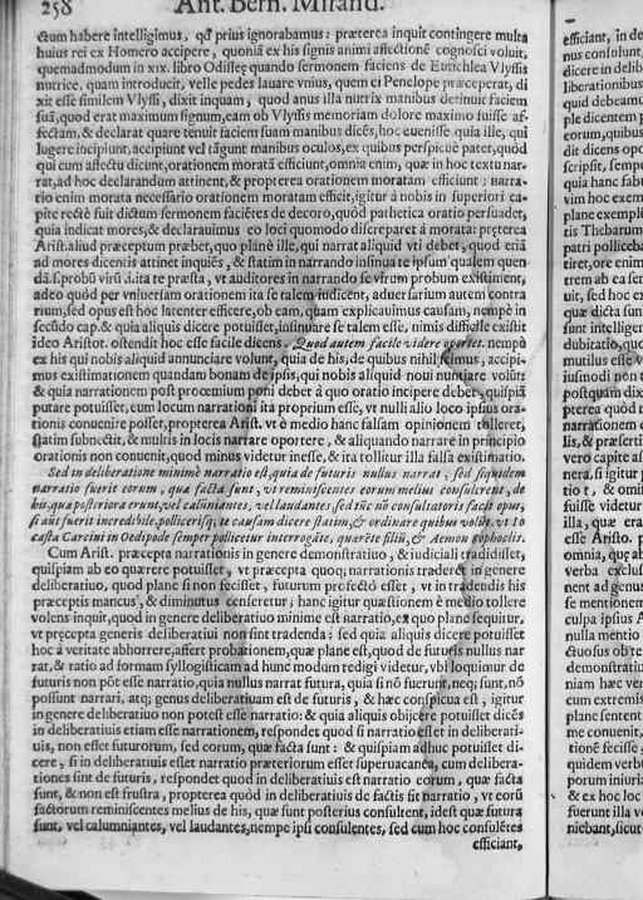 258 Ant. Bern. Mirand.
ctum habere intelligimus, qđ prius ignorabamus: præterea inquit contingere multa
huius rei ex Homero accipere, quoniā ex his signis animi affectionē cognosci voluit,
quemadmodum in xix. libro Odisseę quando sermonem faciens de Euriclea Vlyssis
nutrice, quam introducit, velle pedes lauare vnius, quem ei Penelope præceperat, di
xit esse similem Vlyssi, dixit inquam, quod anus illa nutrix manibus detinuit faciem
suā, quod erat maximum signum, eam ob Vlyssis memoriam dolore maximo fuisse af-
fectam, & declarat quare tenuit faciem suam manibus dicēs, hoc euenisse quia ille, qui
lugere incipiunt, accipiunt vel tāgunt manibus oculos, ex quibus perspicuè patet, quòd
qui cum affectu dicunt, orationem moratā efficiunt, omnia enim, quæ in hoc textu nar-
rat, ad hoc declarandum attinent, & propterea orationem moratam efficiunt: narra-
tio enim morata necessariò orationem moratam efficit, igitur à nobis in superiori ca-
pite rectè fuit dictum sermonem faciētes de decoro, quòd pathetica oratio persuadet,
quia indicat mores, & declarauimus eo loci quomodo discreparet à morata: pręterea
Arist. aliud præceptum præbet, quo planè ille, qui narrat aliquid vti debet, quod etiā
ad mores dicentis attinet inquiēs, & statim in narrando insinua te ipsum qualem quen
dā. s. probū virū .i. ita te præsta, vt auditores in narrando se virum probum existiment,
adeo quòd per vniuersam orationem ita se talem iudicent, aduersarium autem contra
rium, sed opus est hoc latenter efficere, ob eam, quam explicauimus causam, nempè in
secūdo cap. & quia aliquis dicere potuisset, insinuare se talem esse, nimis difficile existit
ideo Aristot. ostendit hoc esse facile dicens. Quod autem facile videre oportet. nempè
ex his qui nobis aliquid annunciare volunt, quia de his, de quibus nihil scimus, accipi-
mus existimationem quandam bonam de ipsis, qui nobis aliquid noui nuntiare volūt:
& quia narrationem post procemium poni debet à quo oratio incipere debet, quispiā
putare potuisset, eum locum narrationi ita proprium esse, vt nulli alio loco ipsius ora-
tionis conuenire posset, propterea Arist. vt è medio hanc falsam opinionem tolleret,
statim subnectit, & multis in locis narrare oportere, & aliquando narrare in principio
orationis non conuenit, quod minus videtur inesse, & ita tollitur illa falsa existimatio.
Sed in deliberatione minimè narratio est, quia de futuris nullus narrat, sed siquidem
narratio fuerit eorum, quæ facta sunt, vt reminiscentes eorum melius consulerent, de
his, quæ posteriora erunt, vel calūniantes, vel laudantes, sed tūc nō consultatoris facit opus,
si aut fuerit incredibile, pollicerisq; te causam dicere statim, & ordinare quibus volūt. vt Io
casta Carcini in Oedipode semper pollicetur interrogāte, quærēte filiū, & Aemon Sophoclis.
Cum Arist. præcepta narrationis in genere demonstratiuo, & iudiciali tradidisset,
quispiam ab eo quærere potuisset, vt præcepta quoq; narrationis traderet in genere
deliberatiuo, quod planè si non fecisset, futurum profectò esset, vt in tradendis his
præceptis mancus, & diminutus censeretur; hanc igitur quæstionem è medio tollere
volens inquit, quod in genere deliberatiuo minime est narratio, ex quo planè sequitur,
vt pręcepta generis deliberatiui non sint tradenda: sed quia aliquis dicere potuisset
hoc à veritate abhorrere, affert probationem, quæ planè est, quod de futuris nullus nar
rat, & ratio ad formam syllogisticam ad hunc modum redigi videtur, vbi loquimur de
futuris non pōt esse narratio, quia nullus narrat futura, quia si nō fuerunt, neq; sunt, nō
possunt narrari, atq; genus deliberatiuum est de futuris, & hæc conspicua est, igitur
in genere deliberatiuo non potest esse narratio: & quia aliquis obijcere potuisset dicēs
in deliberatiuis etiam esse narrationem, respondet quod si narratio esset in deliberati-
uis, non esset futurorum, sed eorum, quæ facta sunt: & quispiam adhuc potuisset di-
cere, si in deliberatiuis esset narratio præteriorum esset superuacanea, cum delibera-
tiones sint de futuris, respondet quod in deliberatiuis est narratio eorum, quæ facta
sunt, & non est frustra, propterea quòd in deliberatiuis de factis sit narratio, vt eorū
factorum reminiscentes melius de his, quæ sunt posterius consultent, idest quæ futura
sunt, vel calumniantes, vel laudantes, nempe ipsi consulentes, sed cum hoc consulētes
efficiant,